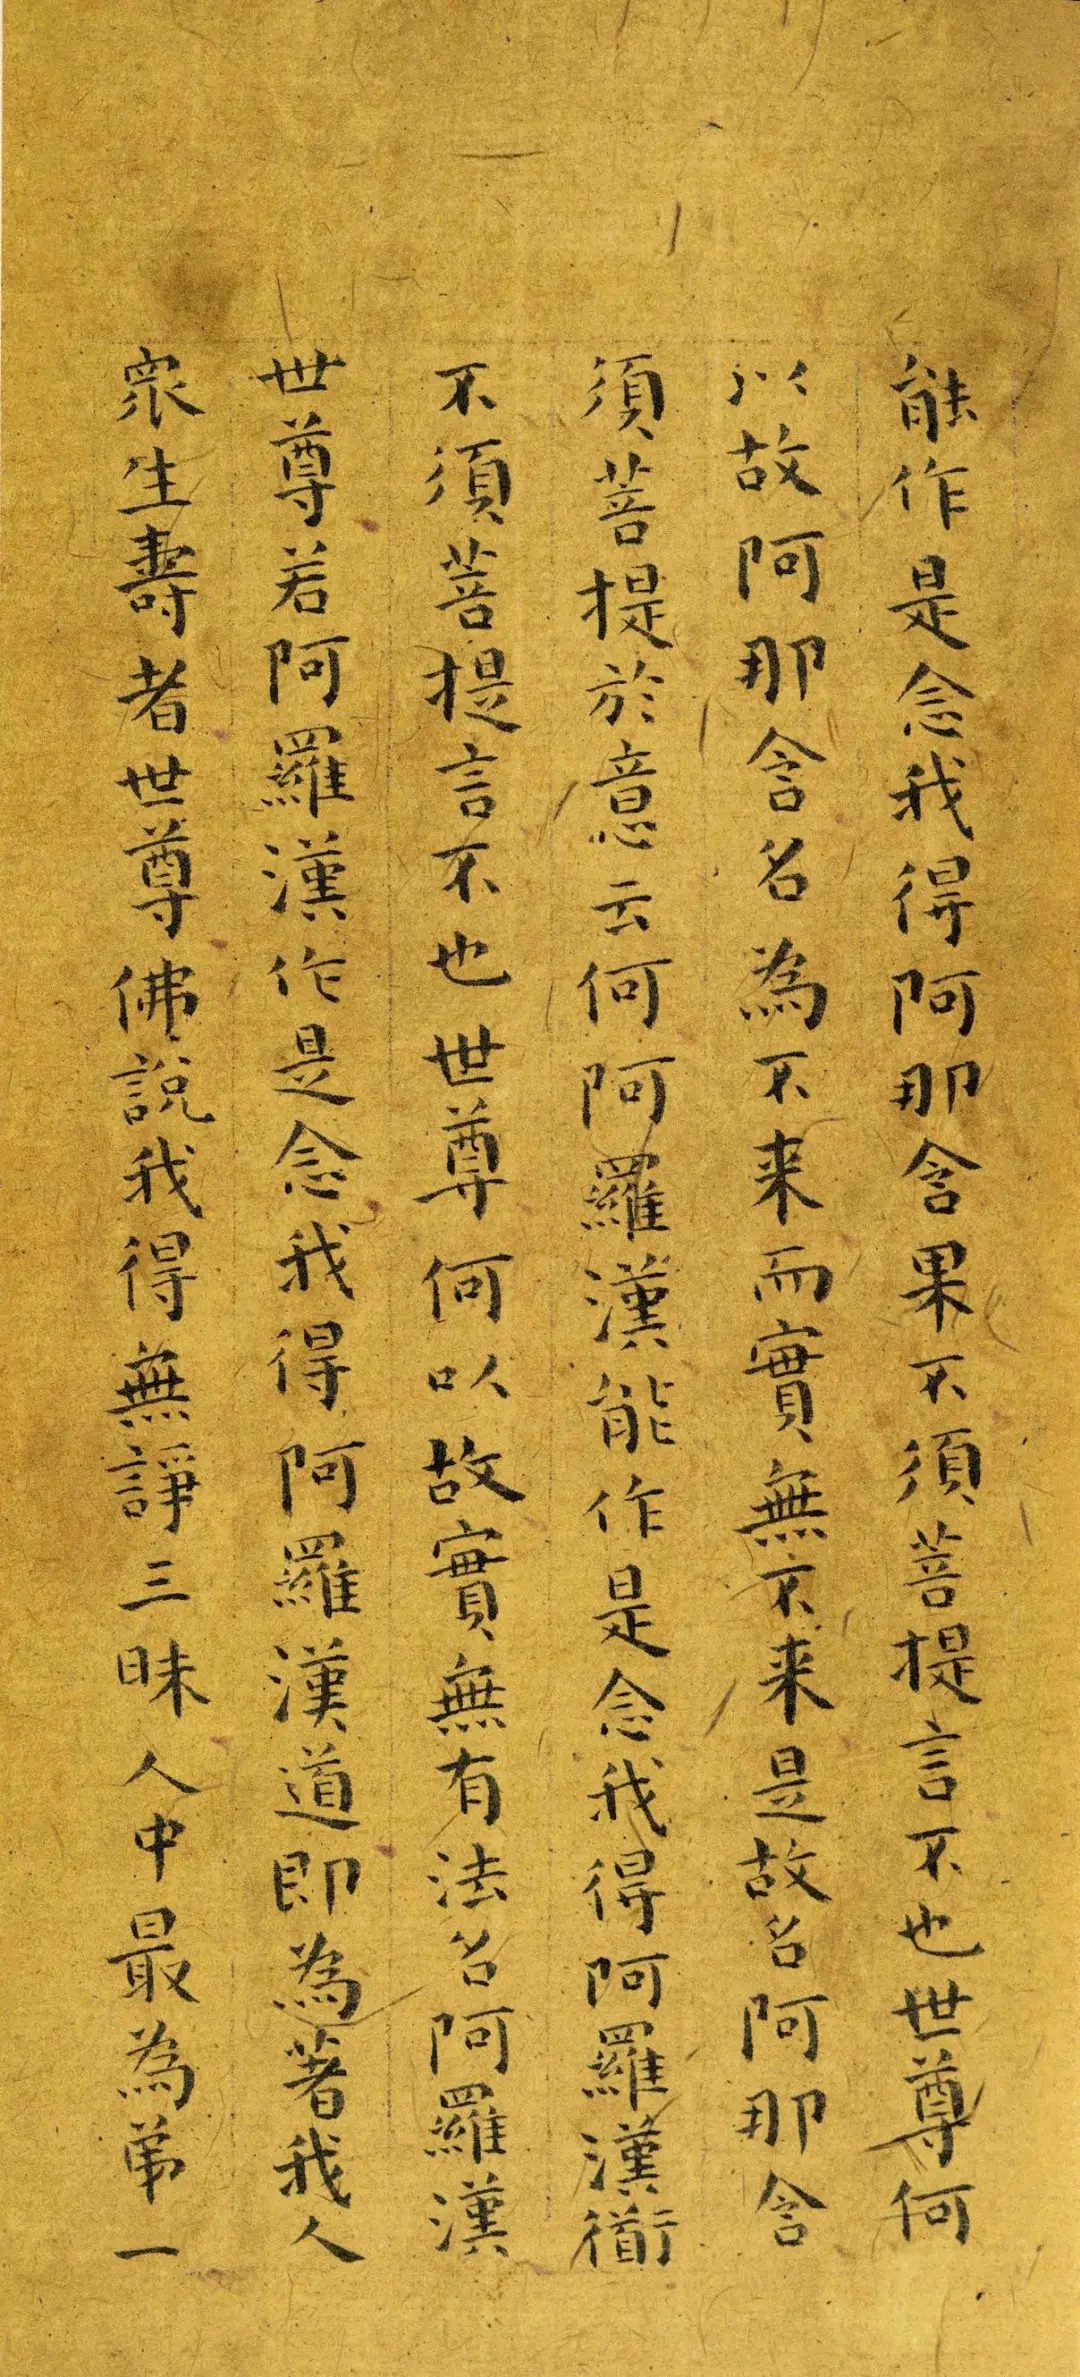 能作是念我得阿那含果不須菩提言不也世尊何
以故阿那含名為不来而實無不来是故名阿那含
須菩提於意云何阿羅漢能作是念我得阿羅漢衜
不須菩提言不也世尊何以故實無有法名阿羅漢
世尊若阿羅漢作是念我得阿羅漢道即為著我人
衆生壽者世尊佛說我得無諍三昧人中最為苐一